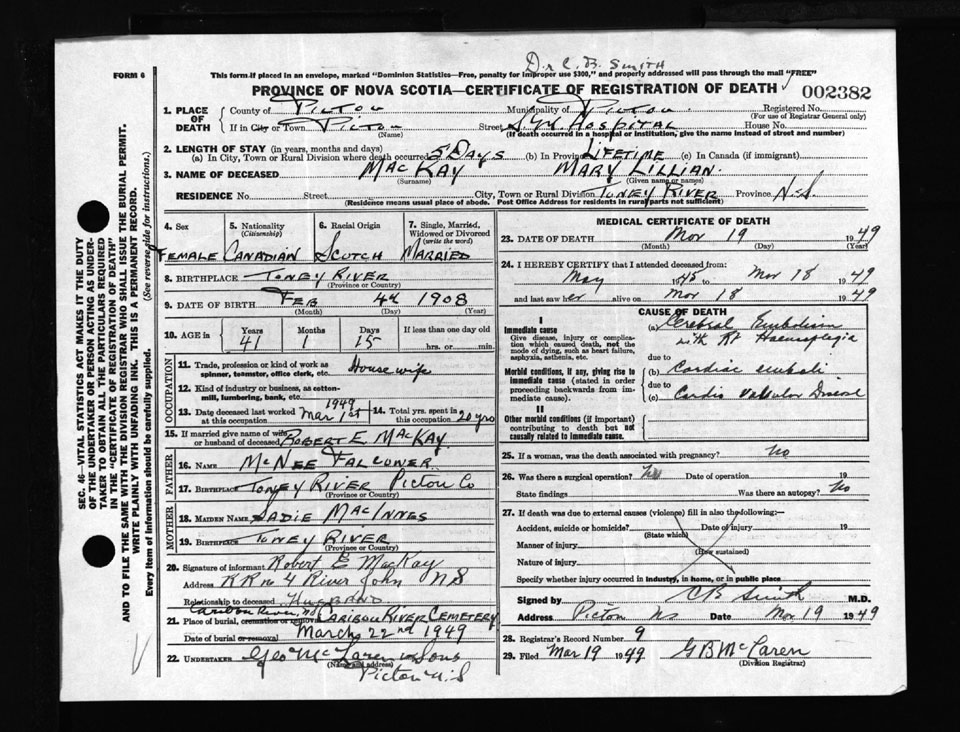 Dr C. B. Smith
FORM 6
This form if placed in an envelope, marked "Dominion Statistics—Free, penalty for improper use $300," and properly addressed will pass through the mail "FREE"
PROVINCE OF NOVA SCOTIA—CERTIFICATE OF REGISTRATION OF DEATH
002382
1. PLACE OF DEATH
County of Pictou Municipality of Pictou Registered No.
(For use of Registrar General only)
If in City or Town Pictou Street Hospital House No.
(Name) (If death occurred in a hospital or institution, give its name instead of street and number)
2. LENGTH OF STAY (in years, months and days)
(a) In City, Town or Rural Division where death occurred 5 Days (b) In Province Lifetime (c) In Canada (if immigrant)
3. NAME OF DECEASED MacKay Mary Lillian.
(Surname) (Given name or names)
RESIDENCE No. Street City, Town or Rural Division Toney River Province N.S.
(Residence means usual place of abode. Post Office Address for residents in rural parts not sufficient)
SEC. 46—VITAL STATISTICS ACT MAKES IT THE DUTY
OF THE UNDERTAKER OR PERSON ACTING AS UNDER-
TAKER TO OBTAIN ALL THE PARTICULARS REQUIRED
IN THE "CERTIFICATE OF REGISTRATION OF DEATH"
AND TO FILE THE SAME WITH THE DIVISION REGISTRAR WHO SHALL ISSUE THE BURIAL PERMIT.
WRITE PLAINLY WITH UNFADING INK. THIS IS A PERMANENT RECORD.
Every item of information should be carefully supplied. (See reverse side for instructions.)
4. Sex 5. Nationality (Citizenship) 6. Racial Origin 7. Single, Married, Widowed or Divorced (write the word)
Female Canadian Scotch Married
8. BIRTHPLACE Toney River
(Province or Country)
9. DATE OF BIRTH Feb 4th 1908
(Month) (Day) (Year)
10. AGE in Years Months Days If less than one day old
41 1 15 hrs. or min.
OCCUPATION
11. Trade, profession or kind of work as spinner, teamster, office clerk, etc. Housewife
12. Kind of industry or business, as cotton-mill, lumbering, bank, etc.
13. Date deceased last worked at this occupation Mar 1st 1949 14. Total yrs. spent in this occupation 20 yrs
15. If married give name of wife or husband of deceased Robert E. MacKay
FATHER
16. NAME McNee Falconer
17. BIRTHPLACE Toney River Pictou Co
(Province or Country)
MOTHER
18. MAIDEN NAME Sadie MacInnes
19. BIRTHPLACE Toney River
(Province or Country)
20. Signature of informant Robert E MacKay
Address RR no 4 River John NS
Relationship to deceased Husband
Caribou River, NS
21. Place of burial, cremation or removal Caribou River Cemetery
Date of burial or removal March 22nd 1949
22. UNDERTAKER Geo McLaren & Sons
(Name and address)
Pictou N.S
MEDICAL CERTIFICATE OF DEATH
23. DATE OF DEATH Mar 19 1949
(Month) (Day) (Year)
24. I HEREBY CERTIFY that I attended deceased from:
May 1945 to Mar 18 1949
and last saw her alive on Mar 18 1949
CAUSE OF DEATH
I
Immediate cause
Give disease, injury or complication which caused death, not the mode of dying, such as heart failure, asphyxia, asthenia, etc.
(a) Cerebral Embolism
with Rt Haemiplegia
due to
Morbid conditions, if any, giving rise to immediate cause (stated in order proceeding backwards from immediate cause).
(b) Cardiac emboli
due to
(c) Cardio Valvular Disease
II
Other morbid conditions (if important) contributing to death but not causally related to immediate cause.
25. If a woman, was the death associated with pregnancy? No
26. Was there a surgical operation? No Date of operation 19
State findings Was there an autopsy? No
27. If death was due to external causes (violence) fill in also the following:—
Accident, suicide or homicide? Date of injury 19
(State which)
Manner of injury
(How sustained)
Nature of injury
Specify whether injury occurred in industry, in home, or in public place
Signed by CB Smith M.D.
Address Pictou NS Date Mar 19 1949
28. Registrar's Record Number 9
29. Filed Mar 19 1949 G B McLaren
(Division Registrar)